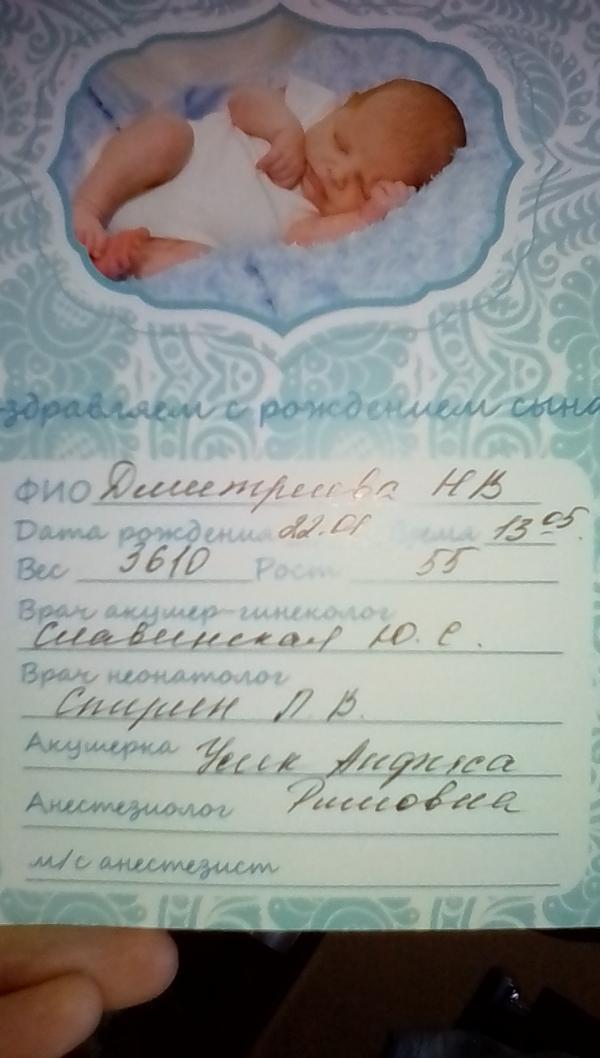 здравляем с рождением сына
ФИО Дмитриева Н В
Дата рождения 22.01 Время 13 05.
Вес 3610 Рост 55
Врач акушер-гинеколог
Славинская Ю. С.
Врач неонатолог
Спирин Л. В.
Акушерка
Анестезиолог Римовна
м/с анестезист